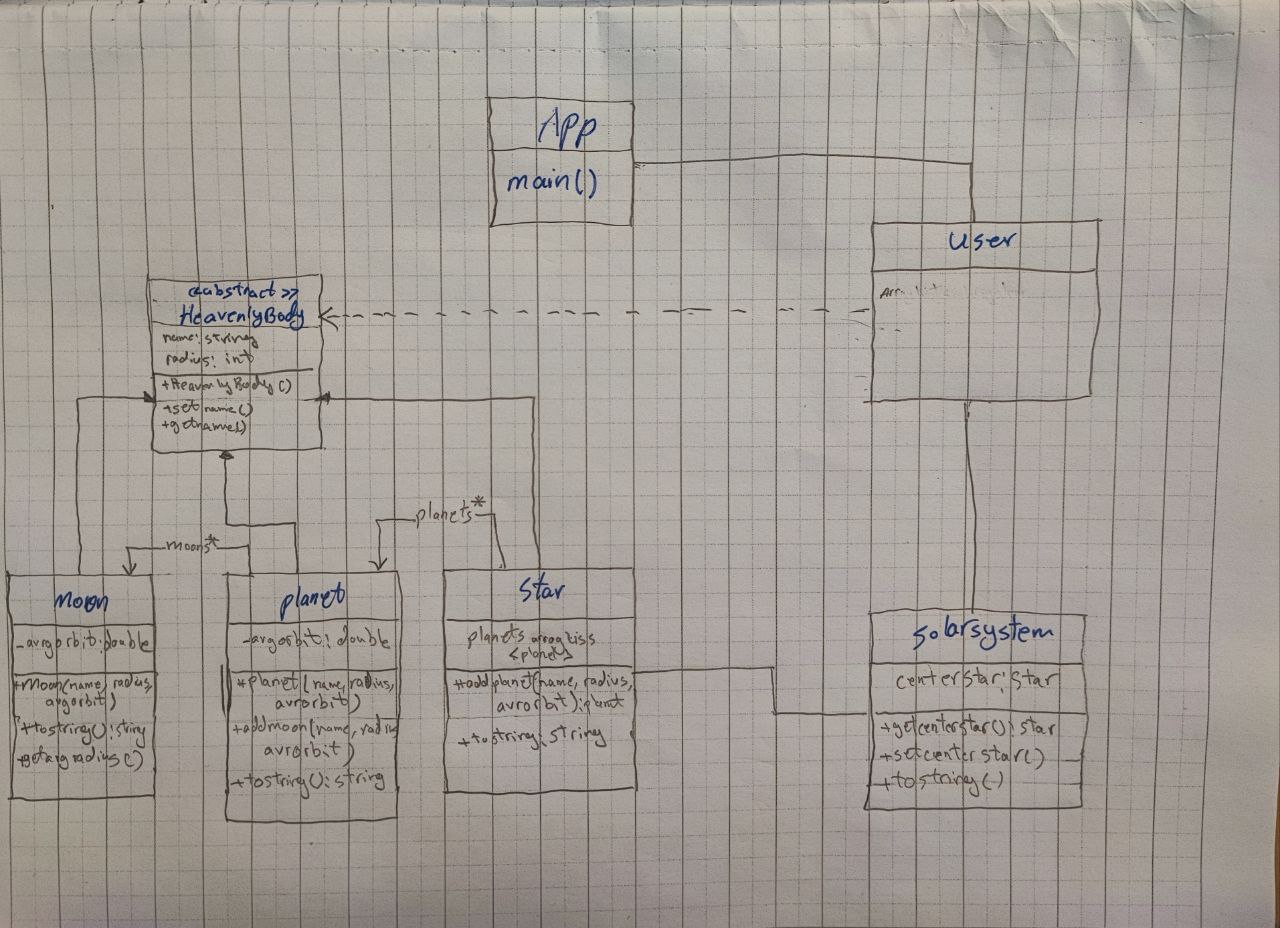 App
main()
User
<<abstract>>
HeavenlyBody
name: string
radius: int
+HeavenlyBody()
+set name()
+getname()
planets*
moons*
Moon
-avrgorbit: double
+Moon(name, radius,
avgorbit)
+tostring(): string
+getavgradius()
planet
-avgorbit: double
+planet(name, radius,
avrorbit)
+addmoon(name, radius
avrorbit)
+tostring(): string
Star
planets
<planet>
+add planet(name, radius,
avrorbit): planet
+tostring: string
solarsystem
centerstar: star
+getcenterstar(): star
+setcenterstar()
+tostring()